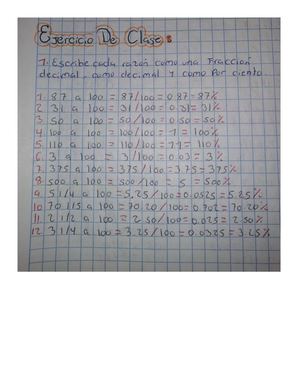 Ejercicio De Clase:
1. Escribe cada razón como una Fracción
decimal, como decimal y como Por ciento.
1. 87 a 100 = 87/100 = 0.87 = 87%
2. 31 a 100 = 31/100 = 0.31 = 31%
3. 50 a 100 = 50/100 = 0.50 = 50%
4. 100 a 100 = 100/100 = 1 = 100%
5. 110 a 100 = 110/100 = 1.1 = 110%
6. 3 a 100 = 3/100 = 0.03 = 3%
7. 375 a 100 = 375/100 = 3.75 = 375%
8. 500 a 100 = 500/100 = 5 = 500%
9. 5 1/4 a 100 = 5.25/100 = 0.0525 = 5.25%
10. 70 1/5 a 100 = 70.20/100 = 0.702 = 70.20%
11. 2 1/2 a 100 = 2.50/100 = 0.025 = 2.50%
12. 3 1/4 a 100 = 3.25/100 = 0.0325 = 3.25%